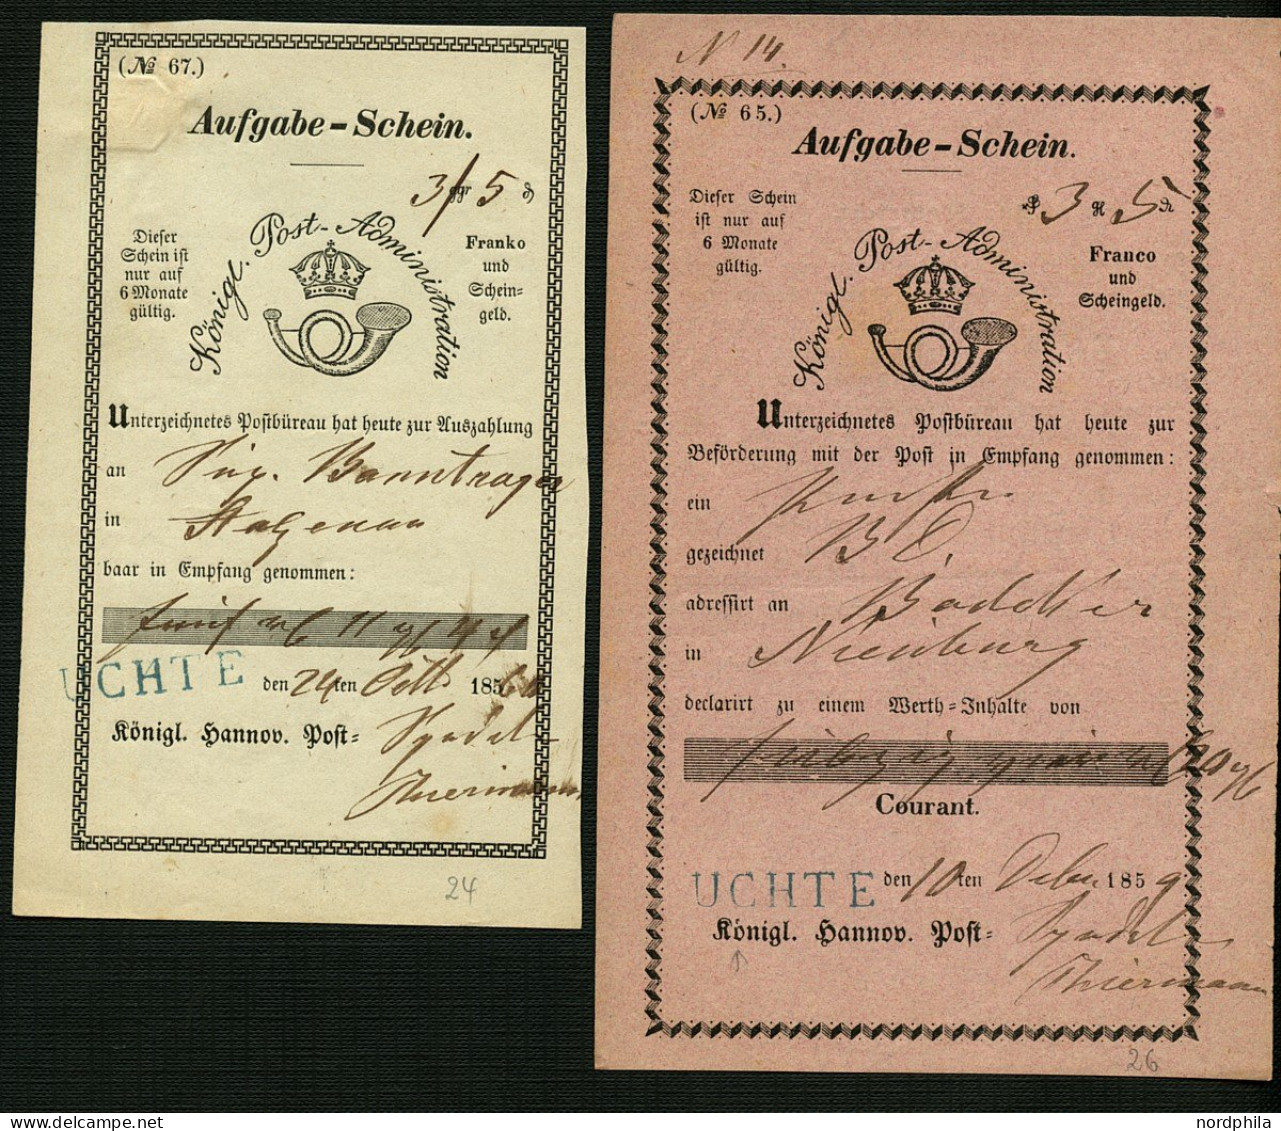 (№ 67.)
Aufgabe-Schein.
3/ ggr 5 ₰
Königl. Post-Administration
Dieser
Schein ist
nur auf
6 Monate
gültig.
Franko
und
Schein-
geld.
Unterzeichnetes Postbüreau hat heute zur Auszahlung
an Banntrager
in
baar in Empfang genommen:
11
UCHTE den 24ten Octb 185
Königl. Hannov. Post-
Thiermann
24
N 14.
(№ 65.)
Aufgabe-Schein.
3 5
Dieser Schein
ist nur auf
6 Monate
gültig.
Königl. Post-Administration
Franco
und
Scheingeld.
Unterzeichnetes Postbüreau hat heute zur
Beförderung mit der Post in Empfang genommen:
ein
gezeichnet B
adressirt an
in Nienburg
declarirt zu einem Werth-Inhalte von
Courant.
UCHTE den 10ten Debr 1859
Königl. Hannov. Post-
Thiermann
26
nordphila